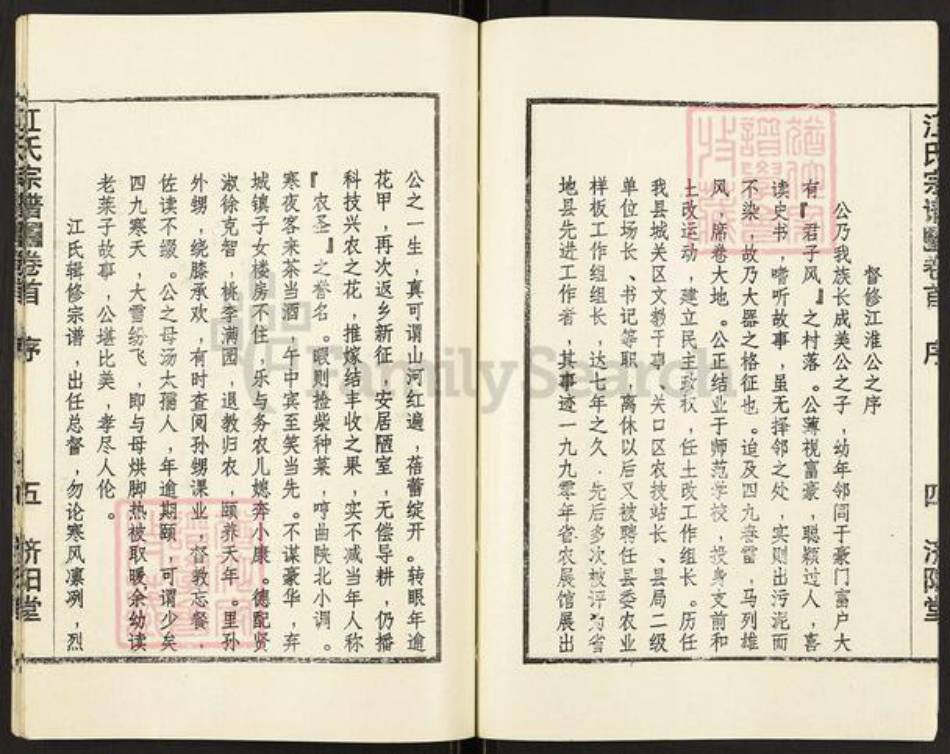 江氏宗谱 卷首 序 四 济阳堂
督修江淮公之序
公乃我族长成美公之子，幼年邻闾于豪门富户大
有『君子风』之村落。公薄视富豪，聪颖过人，喜
读史书，嗜听故事，虽无择邻之处，实则出污泥而
不染，故乃大器之格征也。迨及四九春雷，马列雄
风，席卷大地。公正结业于师范学校，投身支前和
土改运动，建立民主政权，任土改工作组长。历任
我县城关区文教干事，关口区农技站长、县局二级
单位场长、书记等职，离休以后又被聘任县委农业
样板工作组组长，达七年之久．先后多次被评为省
地县先进工作者，其事迹一九九零年省农展馆展出
公之一生，真可谓山河红遍，蓓蕾绽开。转眼年逾
花甲，再次返乡新征，安居陋室，无偿导耕，仍播
科技兴农之花，推嫁结丰收之果，实不减当年人称
『农圣』之誉名。暇则捡柴种菜，哼曲陕北小调。
寒夜客来茶当酒，午中宾至笑当先。不谋豪华，弃
城镇子女楼房不住，乐与务农儿媳奔小康。德配贤
淑徐克智，桃李满园，退教归农，颐养天年。里孙
外甥，绕膝承欢，有时查阅孙甥课业，督教忘餐，
佐读不缀。公之母汤太孺人，年逾期颐，可谓少矣
四九寒天，大雪纷飞，即与母烘脚热被取暖，余幼读
老莱子故事，公堪比美，孝尽人伦。
江氏辑修宗谱，出任总督，勿论寒风凛冽，烈
江氏宗谱 卷首 序 五 济阳堂
FamilySearch